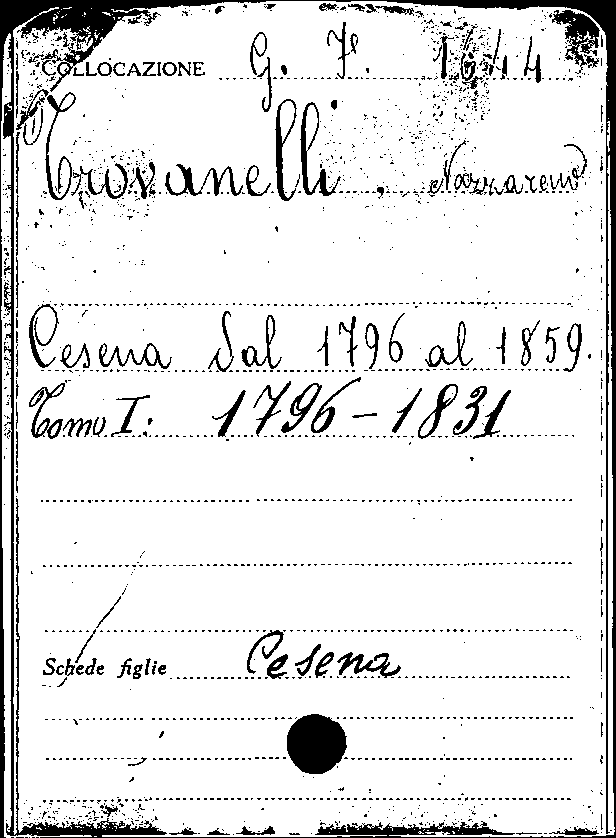 COLLOCAZIONE G. Fe. 1644
Trovanelli, Nazzareno
Cesena dal 1796 al 1859.
Tomo I: 1796 - 1831
Schede figlie Cesena